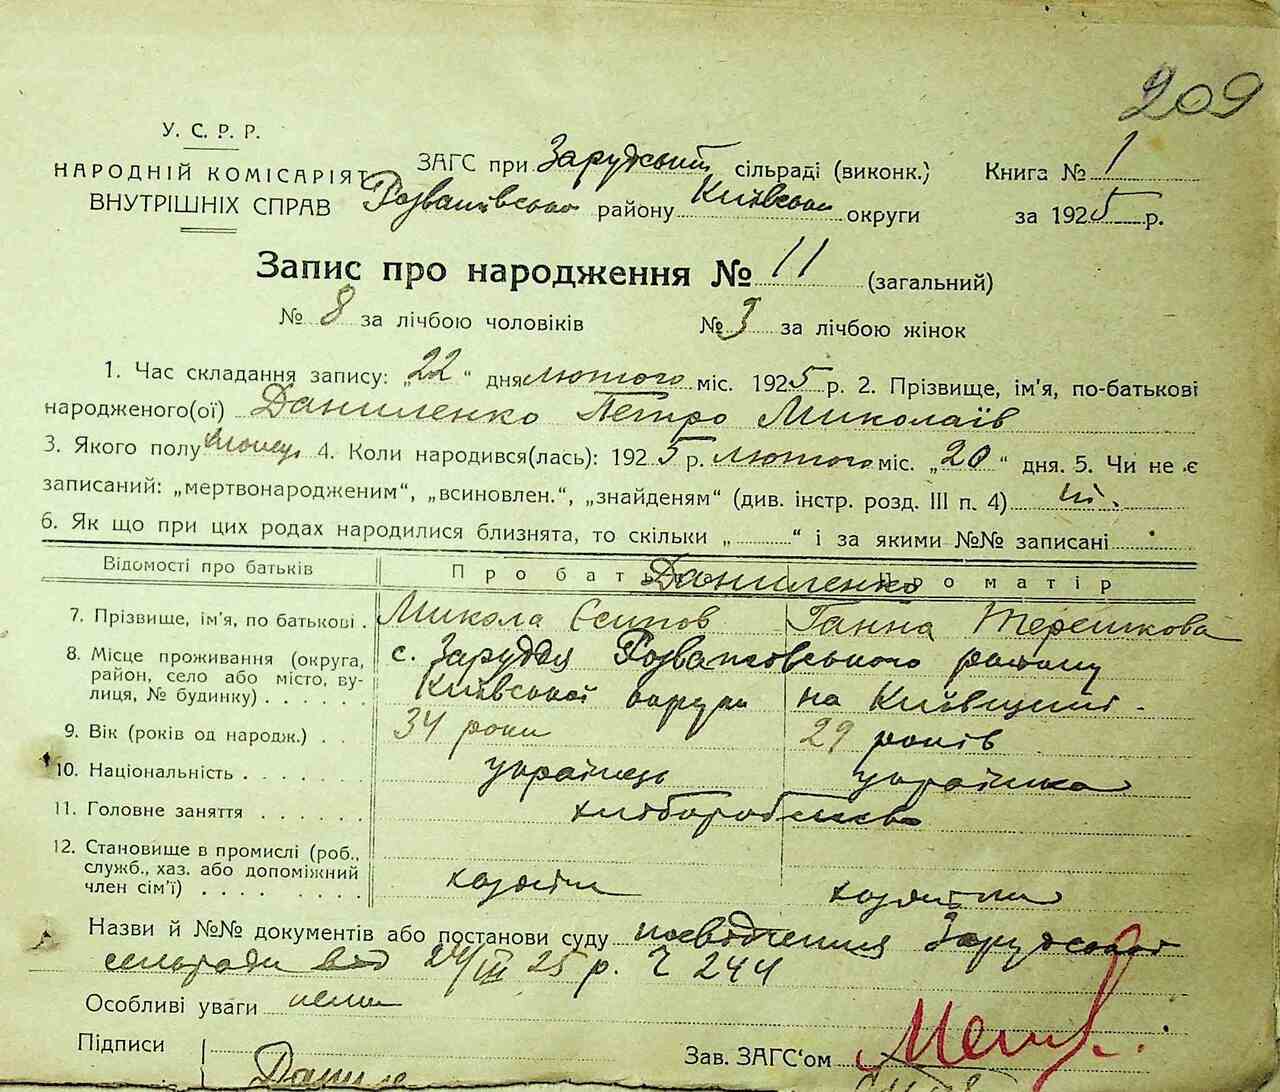 209
У. С. Р. Р.
НАРОДНІЙ КОМІСАРІЯТ
ВНУТРІШНІХ СПРАВ
ЗАГС при Зарудській сільраді (виконк.) Книга № 1
Розважівського району Київської округи за 1925 р.
Запис про народження № 11 (загальний)
№ 8 за лічбою чоловіків № 3 за лічбою жінок
1. Час складання запису: „22“ дня лютого міс. 1925 р. 2. Прізвище, ім'я, по-батькові
народженого(ої) Даниленко Петро Миколаїв
3. Якого полу 4. Коли народився(лась): 1925 р. лютого міс. „20“ дня. 5. Чи не є
записаний: „мертвонародженим“, „всиновлен.“, „знайденям“ (див. інстр. розд. III п. 4) ні.
6. Як що при цих родах народилися близнята, то скільки „ “ і за якими №№ записані
Відомості про батьків Про батька Про матір
Даниленко
7. Прізвище, ім'я, по батькові. Микола Єсипов Ганна Терешкова
8. Місце проживання (округа, с. Заруддя Розважівського району
район, село або місто, ву-
лиця, № будинку) Київської округи на Київщині.
9. Вік (років од народж.) 34 роки 29 років
10. Національність українець українка
11. Головне заняття хліборобство
12. Становище в промислі (роб.,
служб., хаз. або допоміжний
член сім'ї) хазяїн хазяйка
Назви й №№ документів або постанови суду посвідчення Зарудської
сельради від 24/III 25 р. Ч 244
Особливі уваги нема
Підписи
Зав. ЗАГС'ом